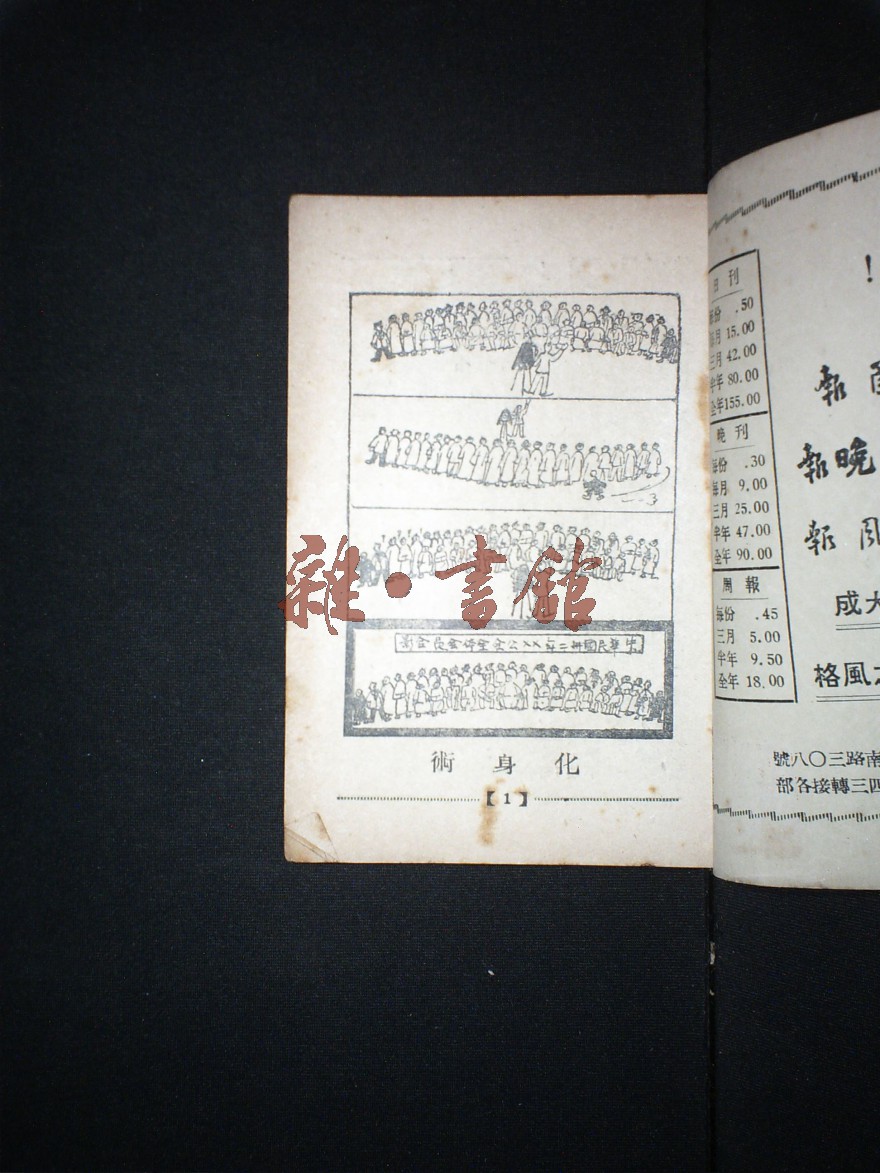 中華民國卅二年××公會全体會員
化身術
【1】
雜·書館
日刊
每份 .50
每月 15.00
三月 42.00
半年 80.00
全年 155.00
晚刊
每份 .30
每月 9.00
三月 25.00
半年 47.00
全年 90.00
周報
每份 .45
三月 5.00
半年 9.50
全年 18.00
!
報
晚報
報
大成
風格
南路三〇八號
四三轉接各部